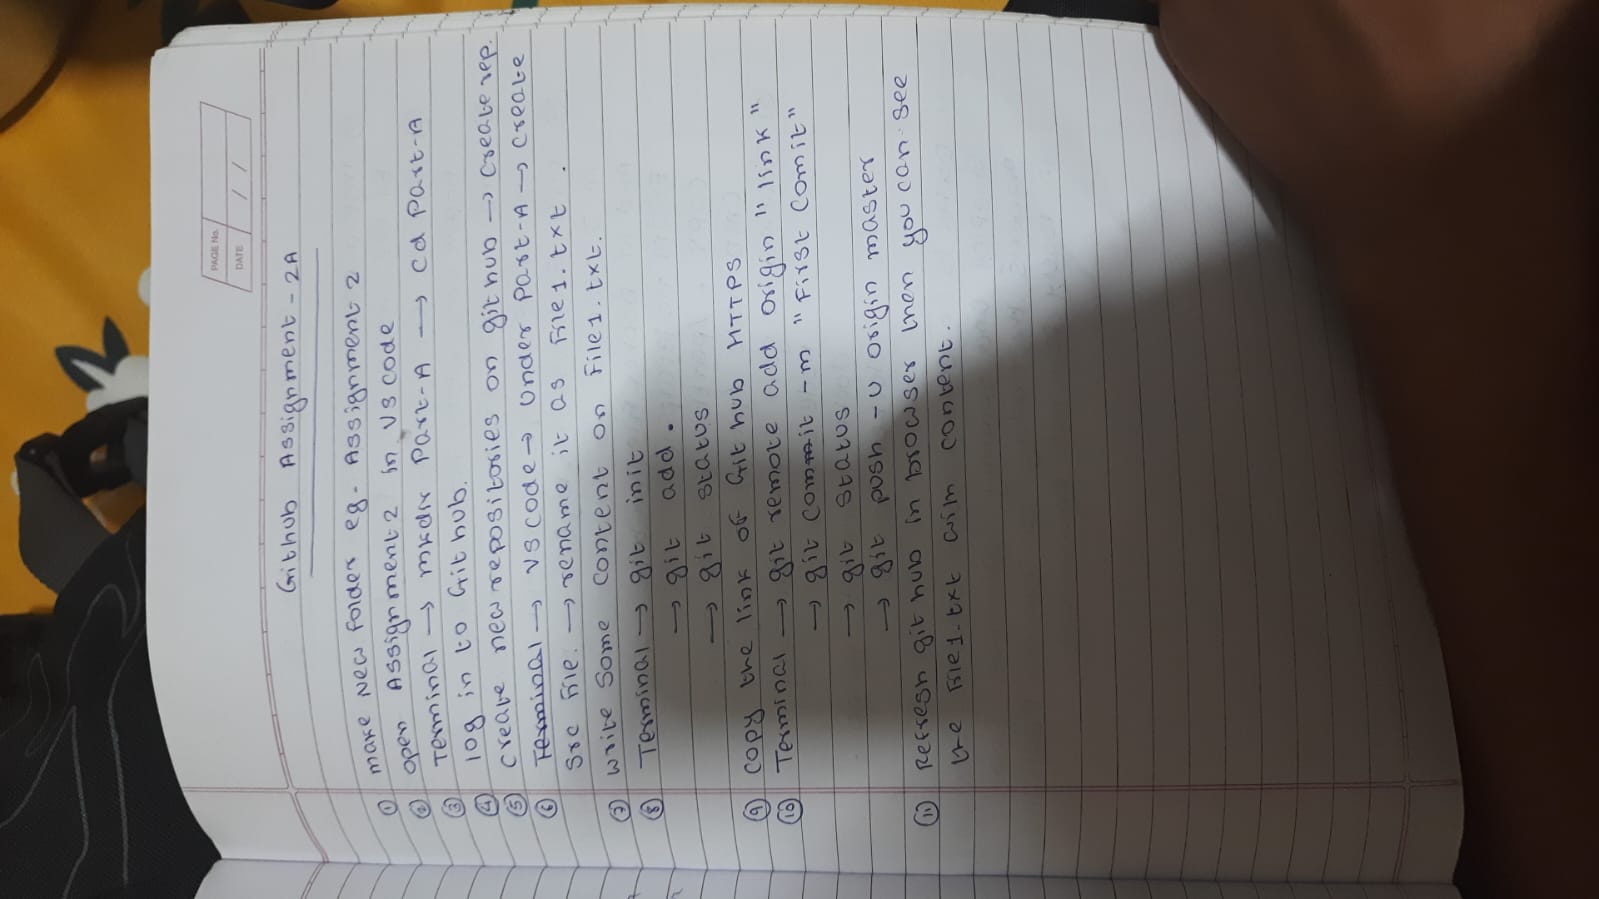 PAGE No.
DATE / /
Github Assignment-2A
① make New folder eg. Assignment 2
② open Assignment 2 in VS code
③ Terminal → mkdir Part-A → cd Part-A
④ log in to Github.
⑤ create new repositories on github → create rep.
⑥ Terminal → VS code → under Part-A → create
src file. → rename it as file1.txt.
⑦ write some content on file1.txt.
⑧ Terminal → git init
→ git add .
→ git status
⑨ copy the link of Github HTTPS
⑩ Terminal → git remote add origin "link"
→ git commit -m "First comit"
→ git status
→ git push -u origin master
⑪ Refresh github in browser then you can see
the file1.txt with content.